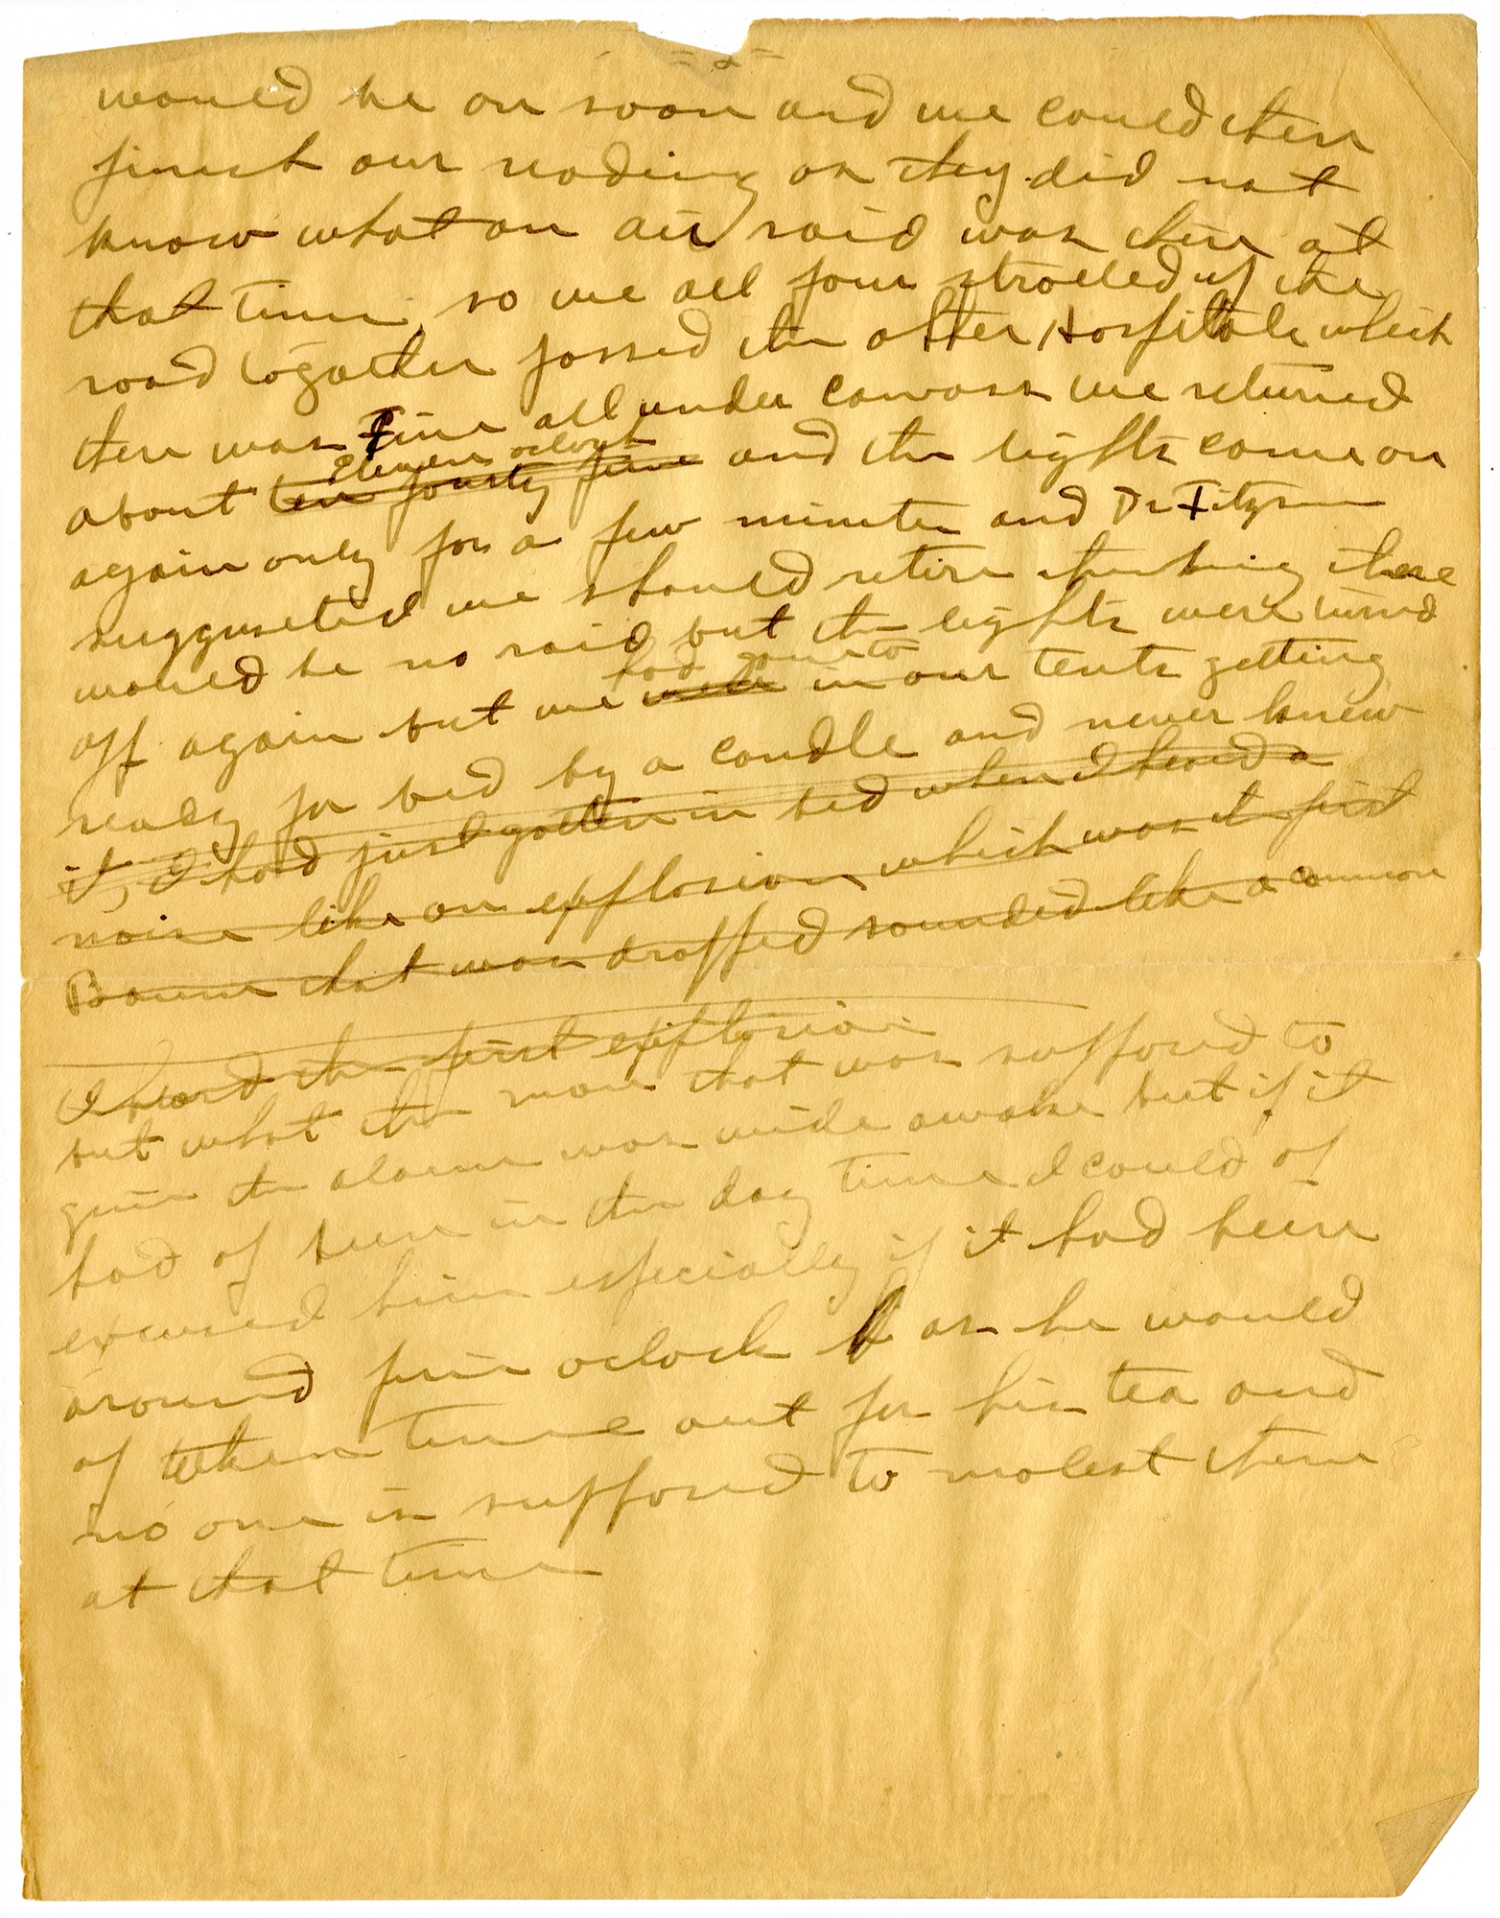 -2-
would be on soon and we could then
finish our reading as they did not
know what an air raid was then at
that time, so we all four strolled up the
road togather passed the other Hospitals which
there was Five all under canvass we returned
Eleven oclock
about ten fourty five and the lights come on
again only for a few minutes and Dr Fitzsm
suggusted we should retire thinking there
would be no raid but the lights were turned
had gone to
off again but we were in our tents getting
ready for bed by a candle and never knew
it, I had just gotten in bed when I heard a
noise like an explosion which was the first
Boum that was dropped sounded like a common
I heard the first explosion
but what the man that was suppord to
give the alarm was wide awake but if it
had of been in the day time I could of
excused him especially if it had been
around five oclock as he would
of taken time out for his tea and
no one is suppord to molest them
at that time